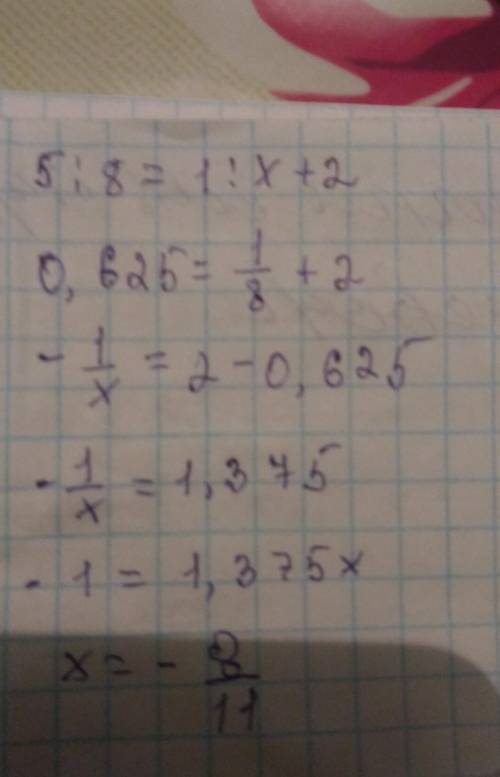 5 : 8 = 1 : x + 2
0,625 = 1/8 + 2
- 1/x = 2 - 0,625
- 1/x = 1,375
- 1 = 1,375x
x = - 8/11